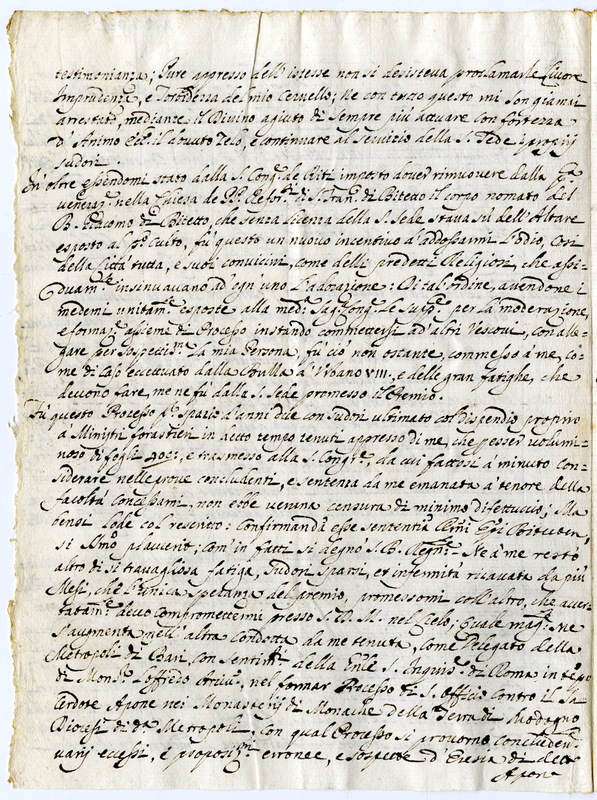 testimonianza; Pure appresso dell' istesse non si desisteva proclamarle livore
Imprudenza, e Torbidezza del mio Cervello; Ne con tutto questo mi son giamai
arrestato, mediante il Divino agiuto di sempre più attuare con fortezza
d' Animo Ecc.co il dovuto zelo, e continuare al servizio della S. Sede i proprij
sudori.
In oltre essendomi stato dalla S. Cong.e de Riti imposto dover rimuovere dalla
veneraz.e nella Chiesa de PP. Refor.ti di S. Fran.co di Bitetto il corpo nomato del
B. Giacomo di Bitetto, che senza licenza della S. Sede stava sù dell' Altare
esposto al pco culto, fù questo un nuovo incentivo d' addossarmi l'odio, così
della Città tutta, e suoi convicini, come delli predetti Religiosi, che assi-
duam.te insinuavano ad ogn uno l'adorazione: Di tal' ordine, avendone i
medemi unitam.te esposte alla med.a Sag. Cong. le sup.e per la moderazione,
e formaz.e assieme di Processo instando commettersi ad' altri Vescovi, con alle-
gare per sospettiss.a la mia Persona, fù ciò non ostante, commesso à me, co-
me di caso eccettuato dalla Bulla d' Urbano VIII. e delle gran fatighe, che
devono fare, me ne fù dalla S. Sede promesso il Premio.
Fù questo Processo p. spazio d'anni due con sudori ultimato col dispendio proprio
à Ministri forastieri in detto tempo tenuti appresso di me, che p esser volumi-
noso di fogli, e trasmesso alla S. Cong.e, da cui fattosi à minuto con-
siderare nelle prove concludenti, e sentenza da me emanata à tenore della
facoltà concessami, non ebbe veruna censura di minimo difettuccio; Ma
bensì lode col rescritto: Confirmandi esse sententia Epi Bituten,
si SSmo placuerit, com' in fatti si degnò S. B. Ne à me restò
altro di sì travagliosa fatiga, sudori sparsi, et infermità ricavata da più
Mesi, che l'unica speranza del premio, promessomi coll' altro, che
devo compromettermi presso S. D. M. nel Cielo; Quale mag. me
s'augmenta nell' altra condotta da me tenuta, come Delegato della
Metropoli di Bari con sentim.ti della S. Inquis.e di Roma in tempo
di Mons.r Loffredo Arciv.o, nel formar Processo di S. Officio contro il Sa-
cerdote Apone nei Monasterij di Monache della Terra di Modugno
Diocesi di d.a Metropoli, con qual Processo si provorno concludentem.te
varij eccessi, e proposiz.ni erronee, e sospette d' Eresia di detto
Apone